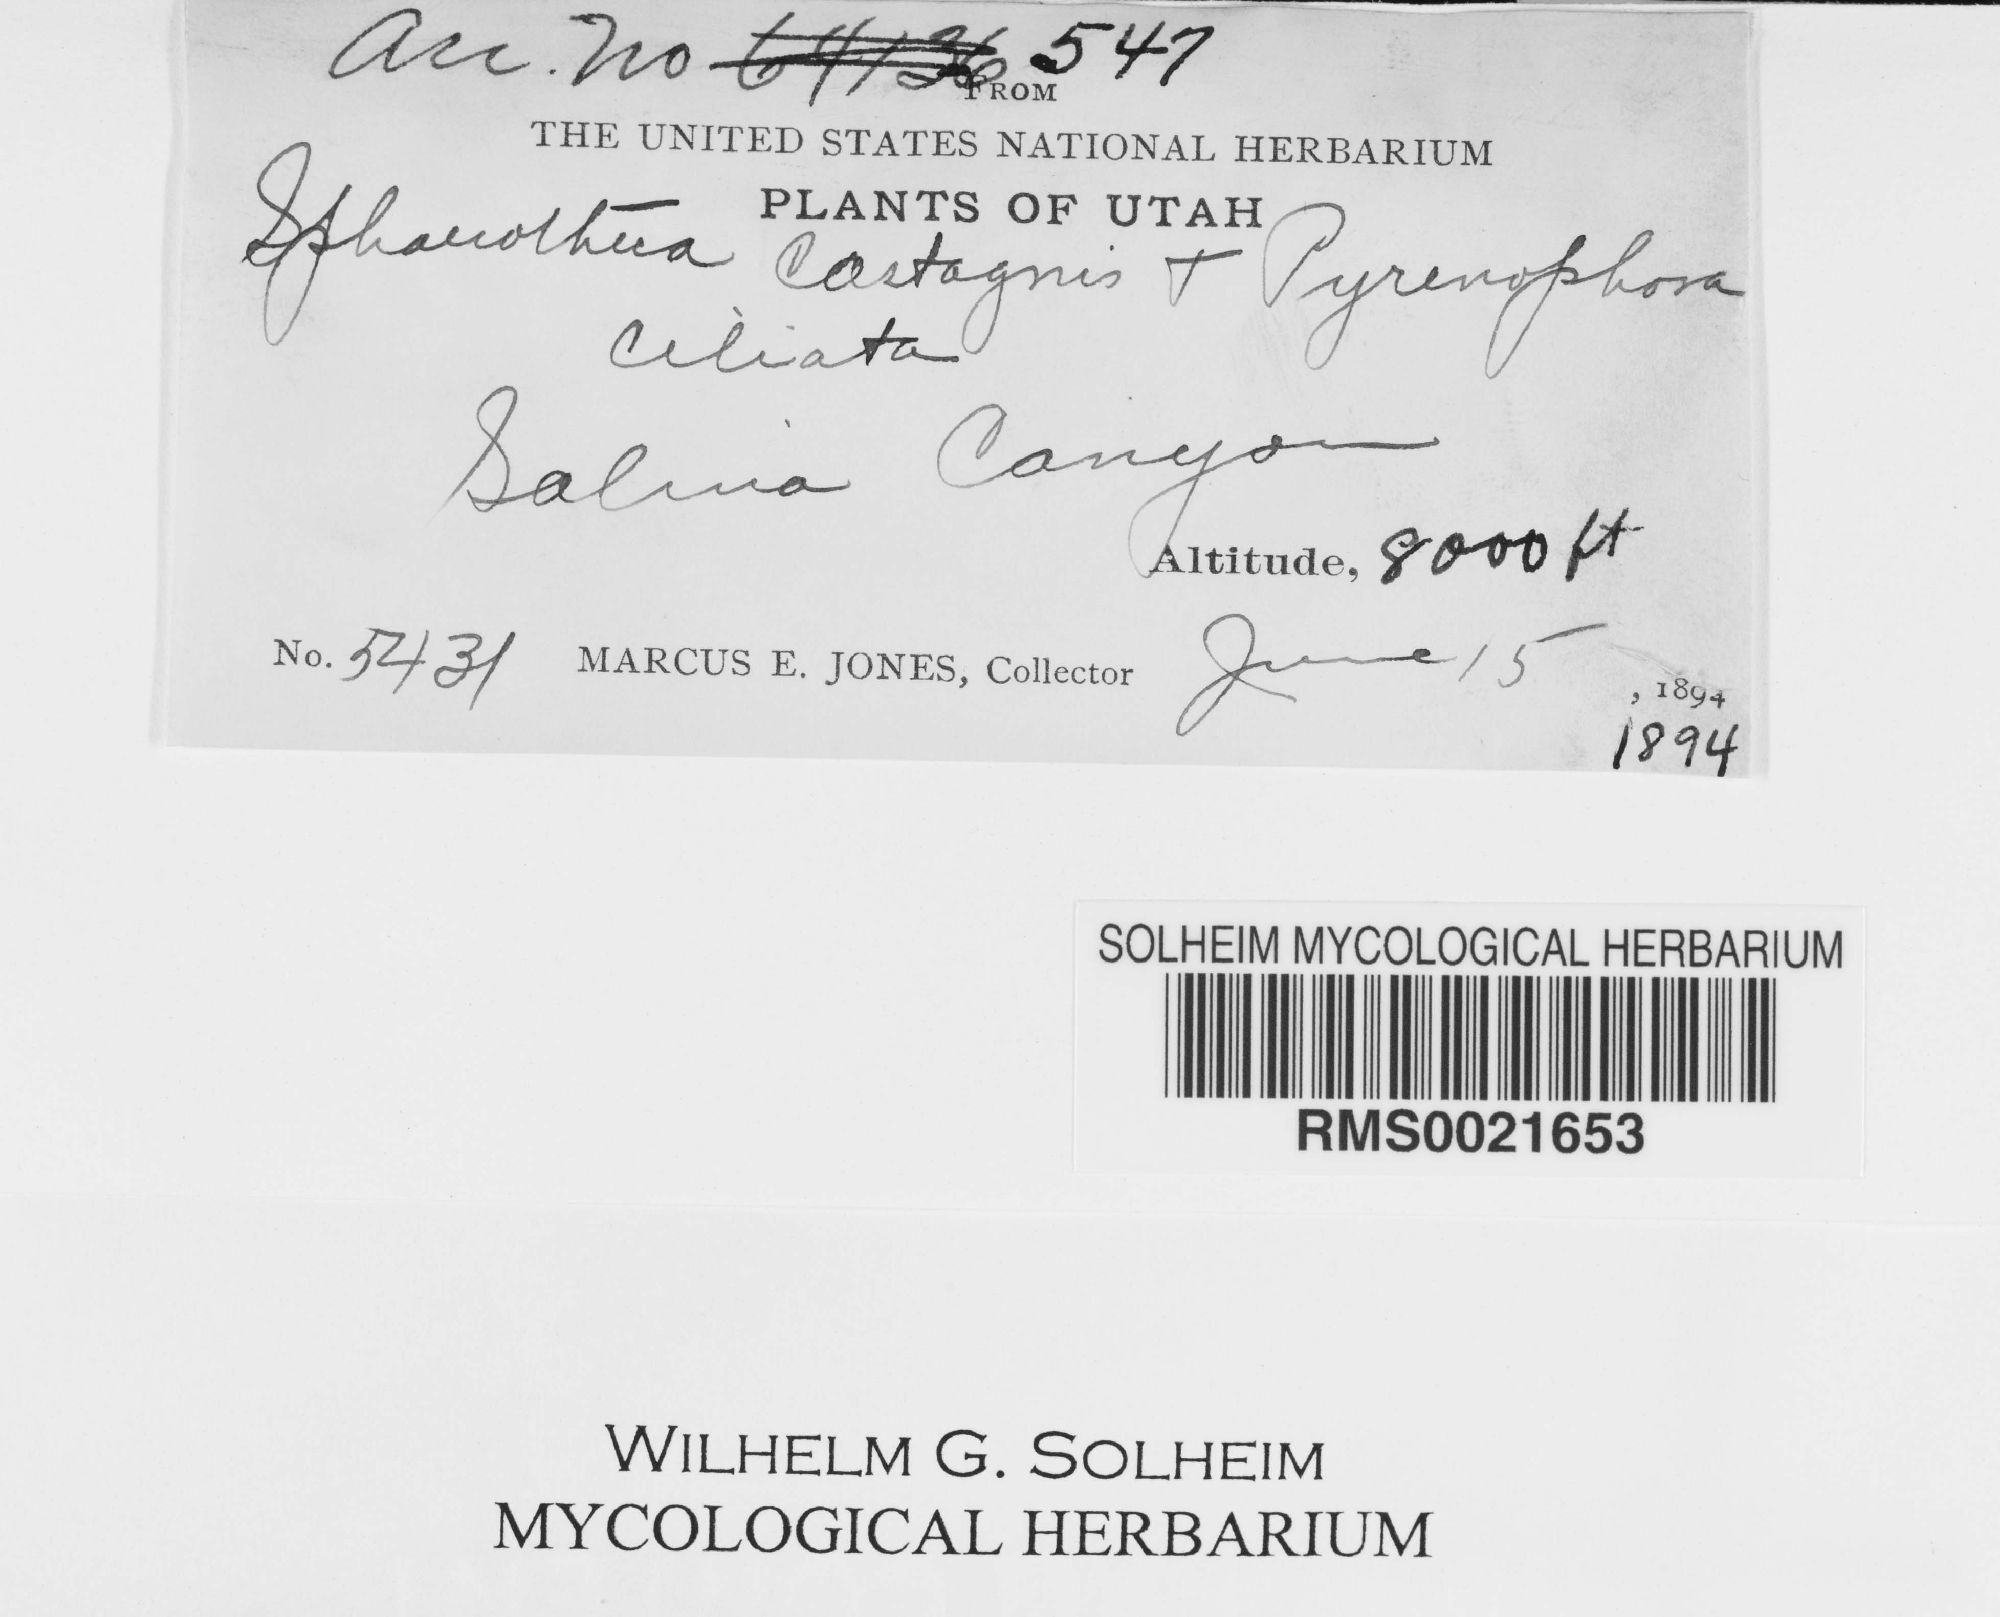 Acc. No 64136 547
FROM
THE UNITED STATES NATIONAL HERBARIUM
PLANTS OF UTAH
Sphaerotheca Castagnis + Pyrenophora
ciliata
Salina Canyon
Altitude, 8000 ft
No. 5431 MARCUS E. JONES, Collector June 15, 1894
1894
SOLHEIM MYCOLOGICAL HERBARIUM
RMS0021653
WILHELM G. SOLHEIM
MYCOLOGICAL HERBARIUM